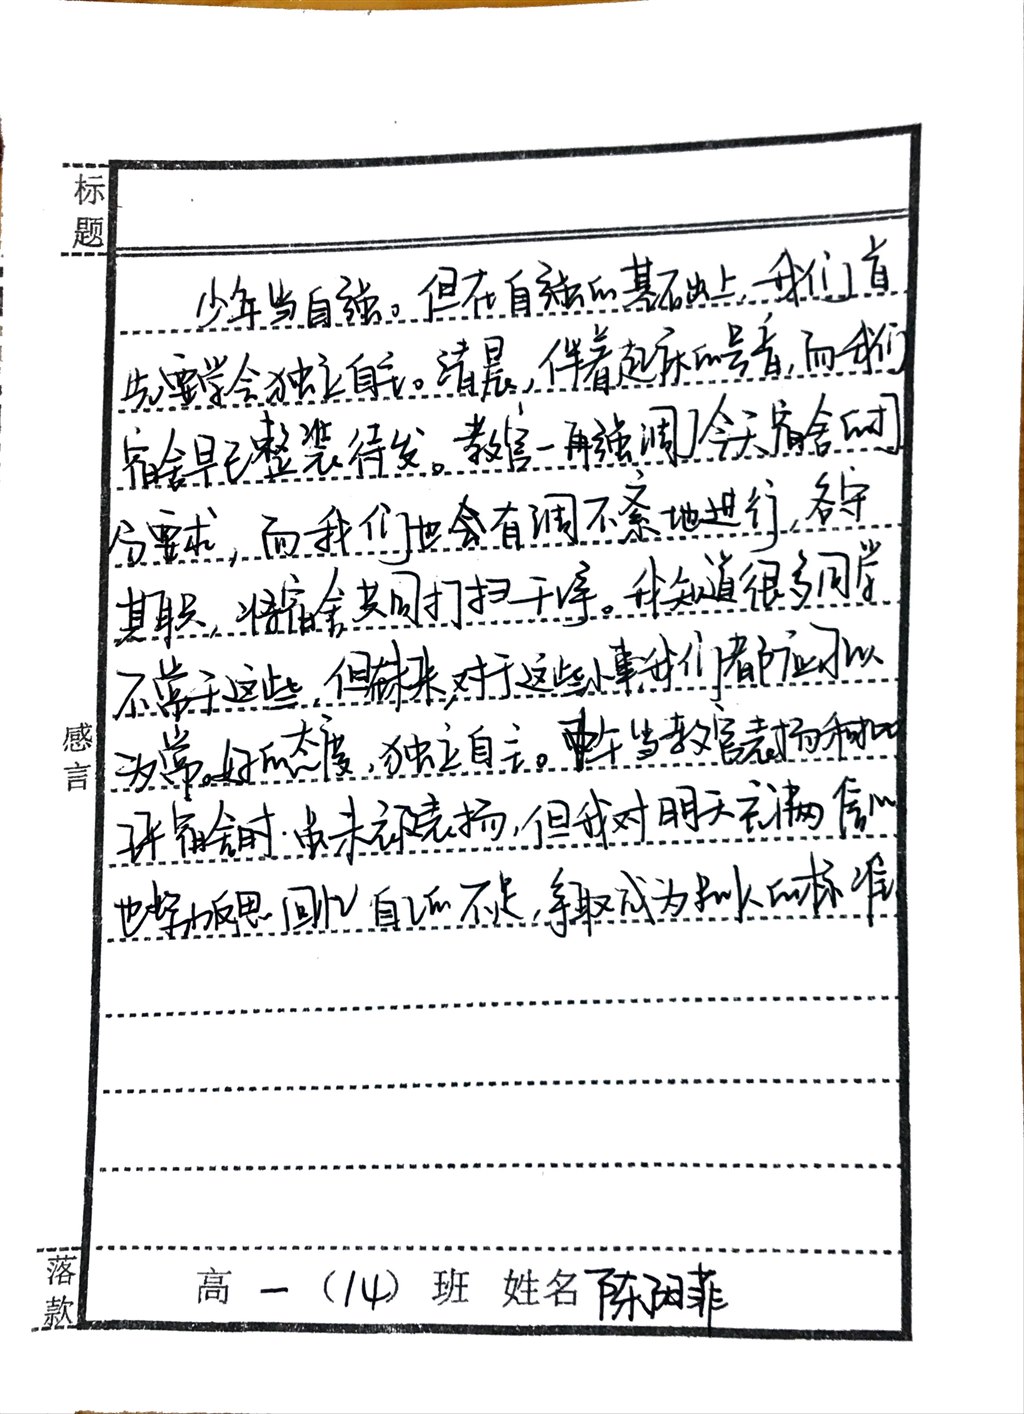 标题
少年当自强。但在自强的基础上,我们首
先要学会独立自主。清晨,伴着起床的号音,而我们
宿舍早已整装待发。教官一再强调了今天宿舍的
要求,而我们也会有调不紊地进行,各守
其职,将宿舍共同打扫干净。我知道很多同学
不常干这些,但未来,对于这些小事我们都应习以
为常。好的态度,独立自主。当教官表扬
宿舍时,虽未被表扬,但我对明天充满信心
也努力反思回忆自己的不足,争取成为别人的标准
感言
落款
高一(14)班 姓名 陈雨菲